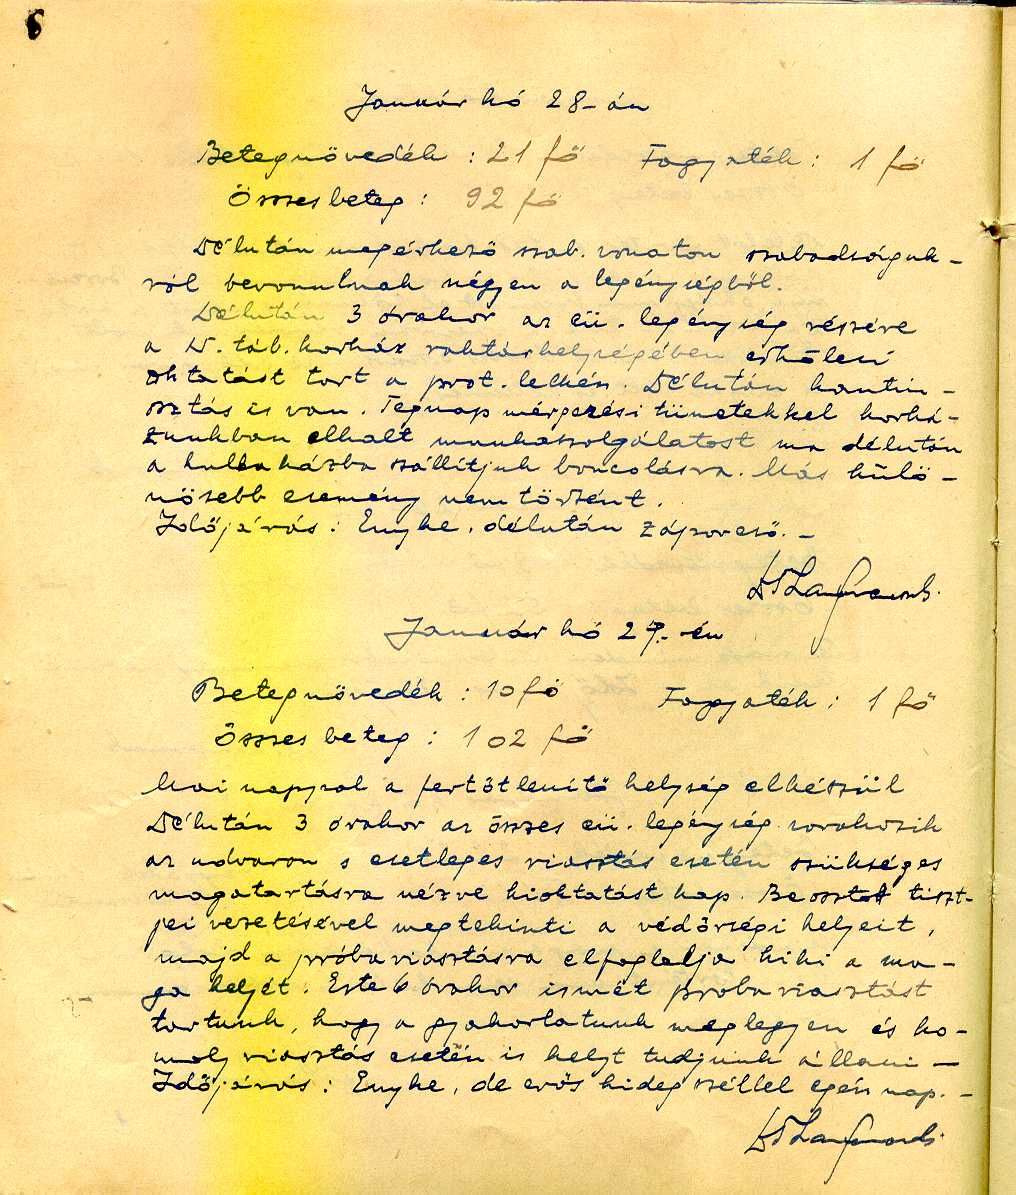 Január hó 28-án
Betegnövedék : 21 fő Fogyaték : 1 fő
Összes beteg : 92 fő
Délután megérkező szab. vonaton szabadságuk-
ról bevonulnak négyen a legénységből.
Délután 3 órakor az eü. legénység részére
a IV. táb. kórház raktárhelységében erkölcsi
oktatást tart a prot. lelkész. Délután kantin-
osztás is van. Tegnap mérgezési tünetekkel kórhá-
zunkban elhalt munkaszolgálatost ma délután
a hullaházba szállítjuk boncolásra. Más külö-
nösebb esemény nem történt.
Időjárás : Enyhe, délután záporeső. -
Január hó 29.-én
Betegnövedék : 10 fő Fogyaték : 1 fő
Összes beteg : 102 fő
Mai nappal a fertőtlenítő helység elkészül
Délután 3 órakor az összes eü. legénység sorakozik
az udvaron s esetleges riasztás esetén szükséges
magatartásra nézve kioktatást kap. Beosztott tiszt-
jei vezetésével megtekinti a védőrségi helyeit,
majd a próbariasztásra elfoglalja kiki a ma-
ga helyét. Este 6 órakor ismét próbariasztást
tartunk, hogy a gyakorlatunk meglegyen és ko-
moly riasztás esetén is helyt tudjunk állani -
Időjárás : Enyhe, de erős hideg széllel egész nap. -